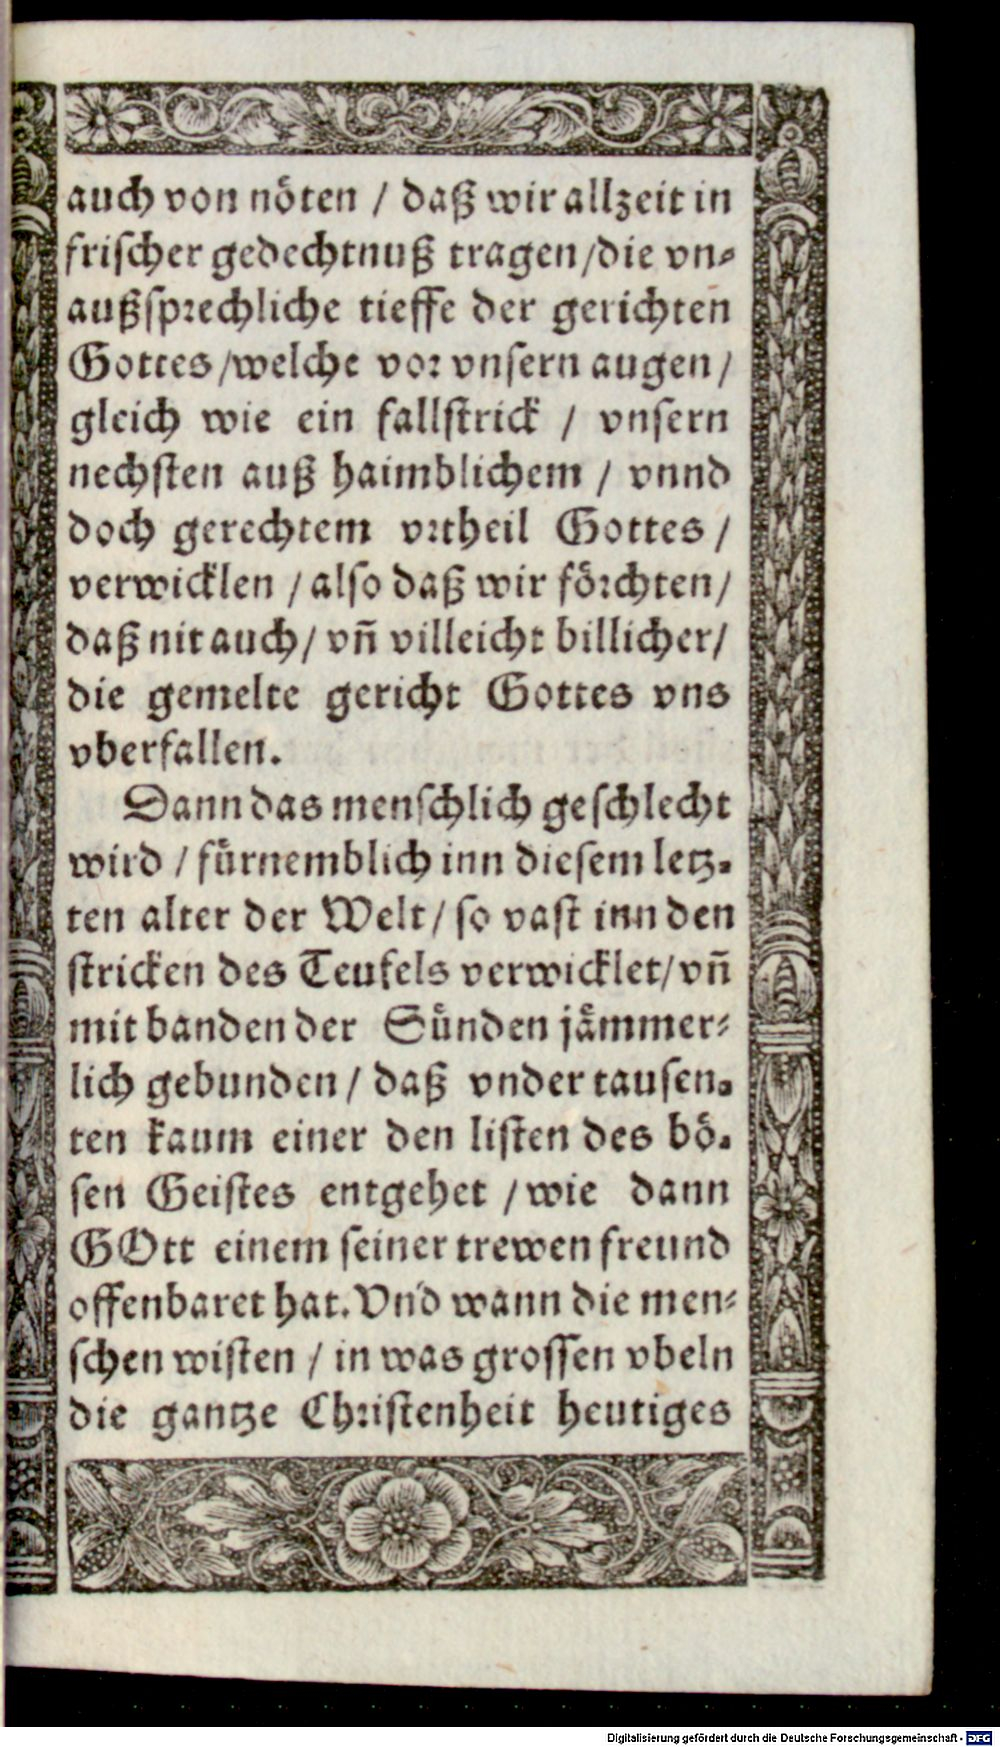 auch von nöten / daß wir allzeit in
frischer gedechtnuß tragen/die vn-
außsprechliche tieffe der gerichten
Gottes/welche vor vnsern augen/
gleich wie ein fallstrick / vnsern
nechsten auß haimblichem / vnnd
doch gerechtem vrtheil Gottes/
verwicklen / also daß wir förchten/
daß nit auch/ vñ villeicht billicher/
die gemelte gericht Gottes vns
vberfallen.
Dann das menschlich geschlecht
wird / fürnemblich inn diesem letz-
ten alter der Welt/ so vast inn den
stricken des Teufels verwicklet/vñ
mit banden der Sünden jämmer-
lich gebunden/ daß vnder tausen-
ten kaum einer den listen des bö-
sen Geistes entgehet /wie dann
GOtt einem seiner trewen freund
offenbaret hat. Vnd wann die men-
schen wisten / in was grossen vbeln
die gantze Christenheit heutiges
Digitalisierung gefördert durch die Deutsche Forschungsgemeinschaft - DFG